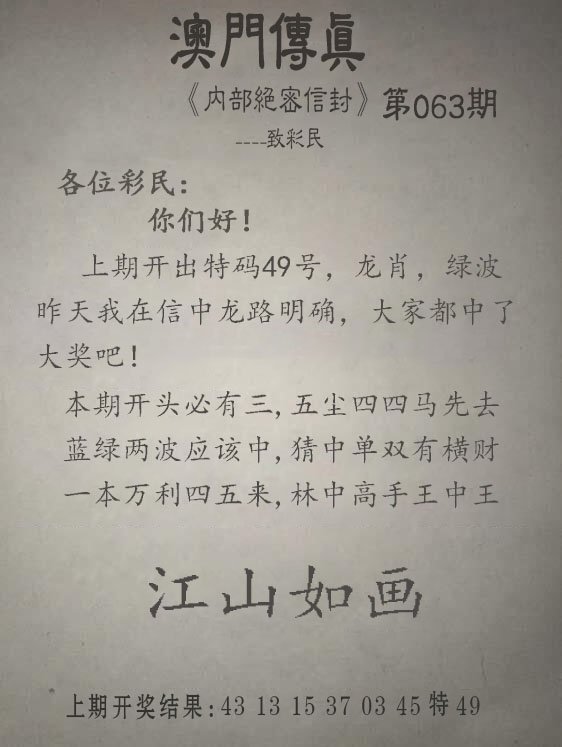 澳門傳真
《内部絕密信封》第063期
----致彩民
各位彩民:
你们好!
上期开出特码49号，龙肖，绿波
昨天我在信中龙路明确，大家都中了
大奖吧!
本期开头必有三,五尘四四马先去
蓝绿两波应该中,猜中单双有横财
一本万利四五来,林中高手王中王
江山如画
上期开奖结果:43 13 15 37 03 45 特 49